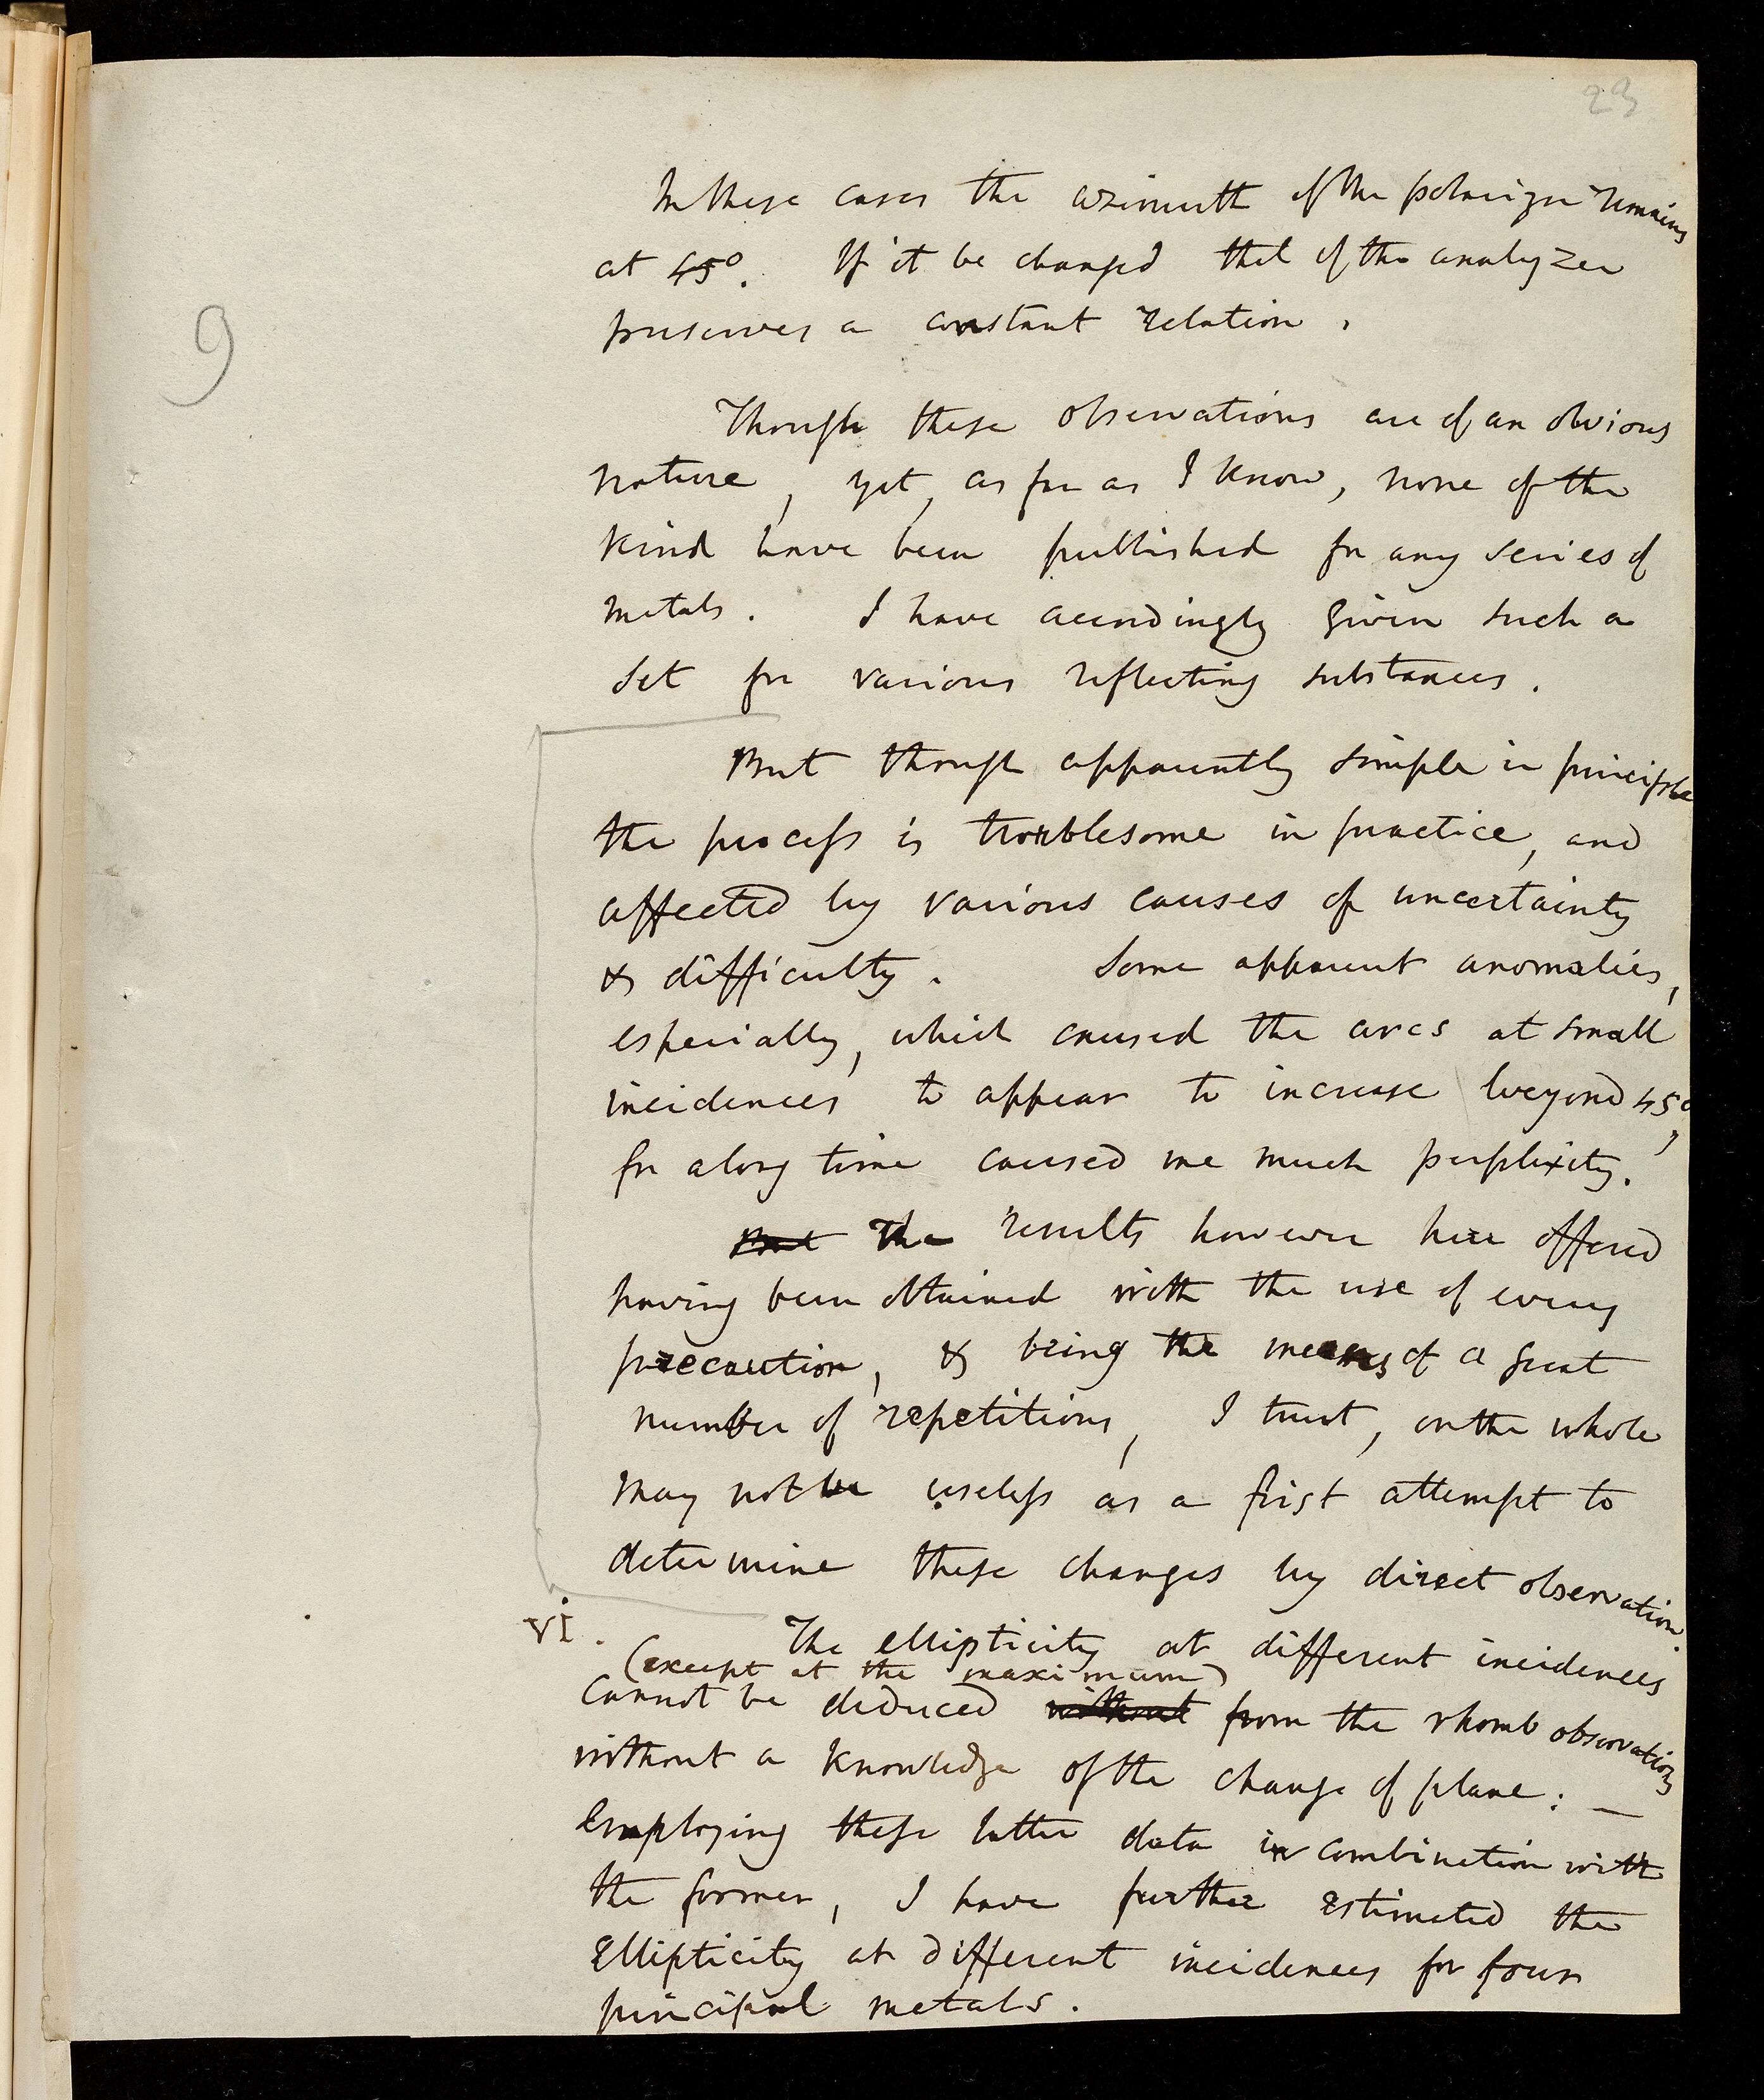 23
In these cases the azimuth of the polarizer remains
at 45°. If it be changed that of the analyzer
preserves a constant relation.
9
Though these observations are of an obvious
nature, yet, as far as I know, none of the
kind have been published for any series of
metals. I have accordingly given such a
set for various reflecting substances.
But though apparently simple in principle
the process is troublesome in practice, and
affected by various causes of uncertainty
& difficulty. Some apparent anomalies,
especially, which caused the arcs at small
incidences to appear to increase beyond 45°,
for a long time caused me much perplexity.
But The results however here offered
having been obtained with the use of every
precaution, & being the means of a great
number of repetitions, I trust, on the whole
may not be useless as a first attempt to
determine these changes by direct observation.
VI. The ellipticity at different incidences
(except at the maximum)
cannot be deduced without from the rhomb observations
without a knowledge of the change of plane: —
Employing these latter data in combination with
the former, I have further estimated the
ellipticity at different incidences for four
principal metals.